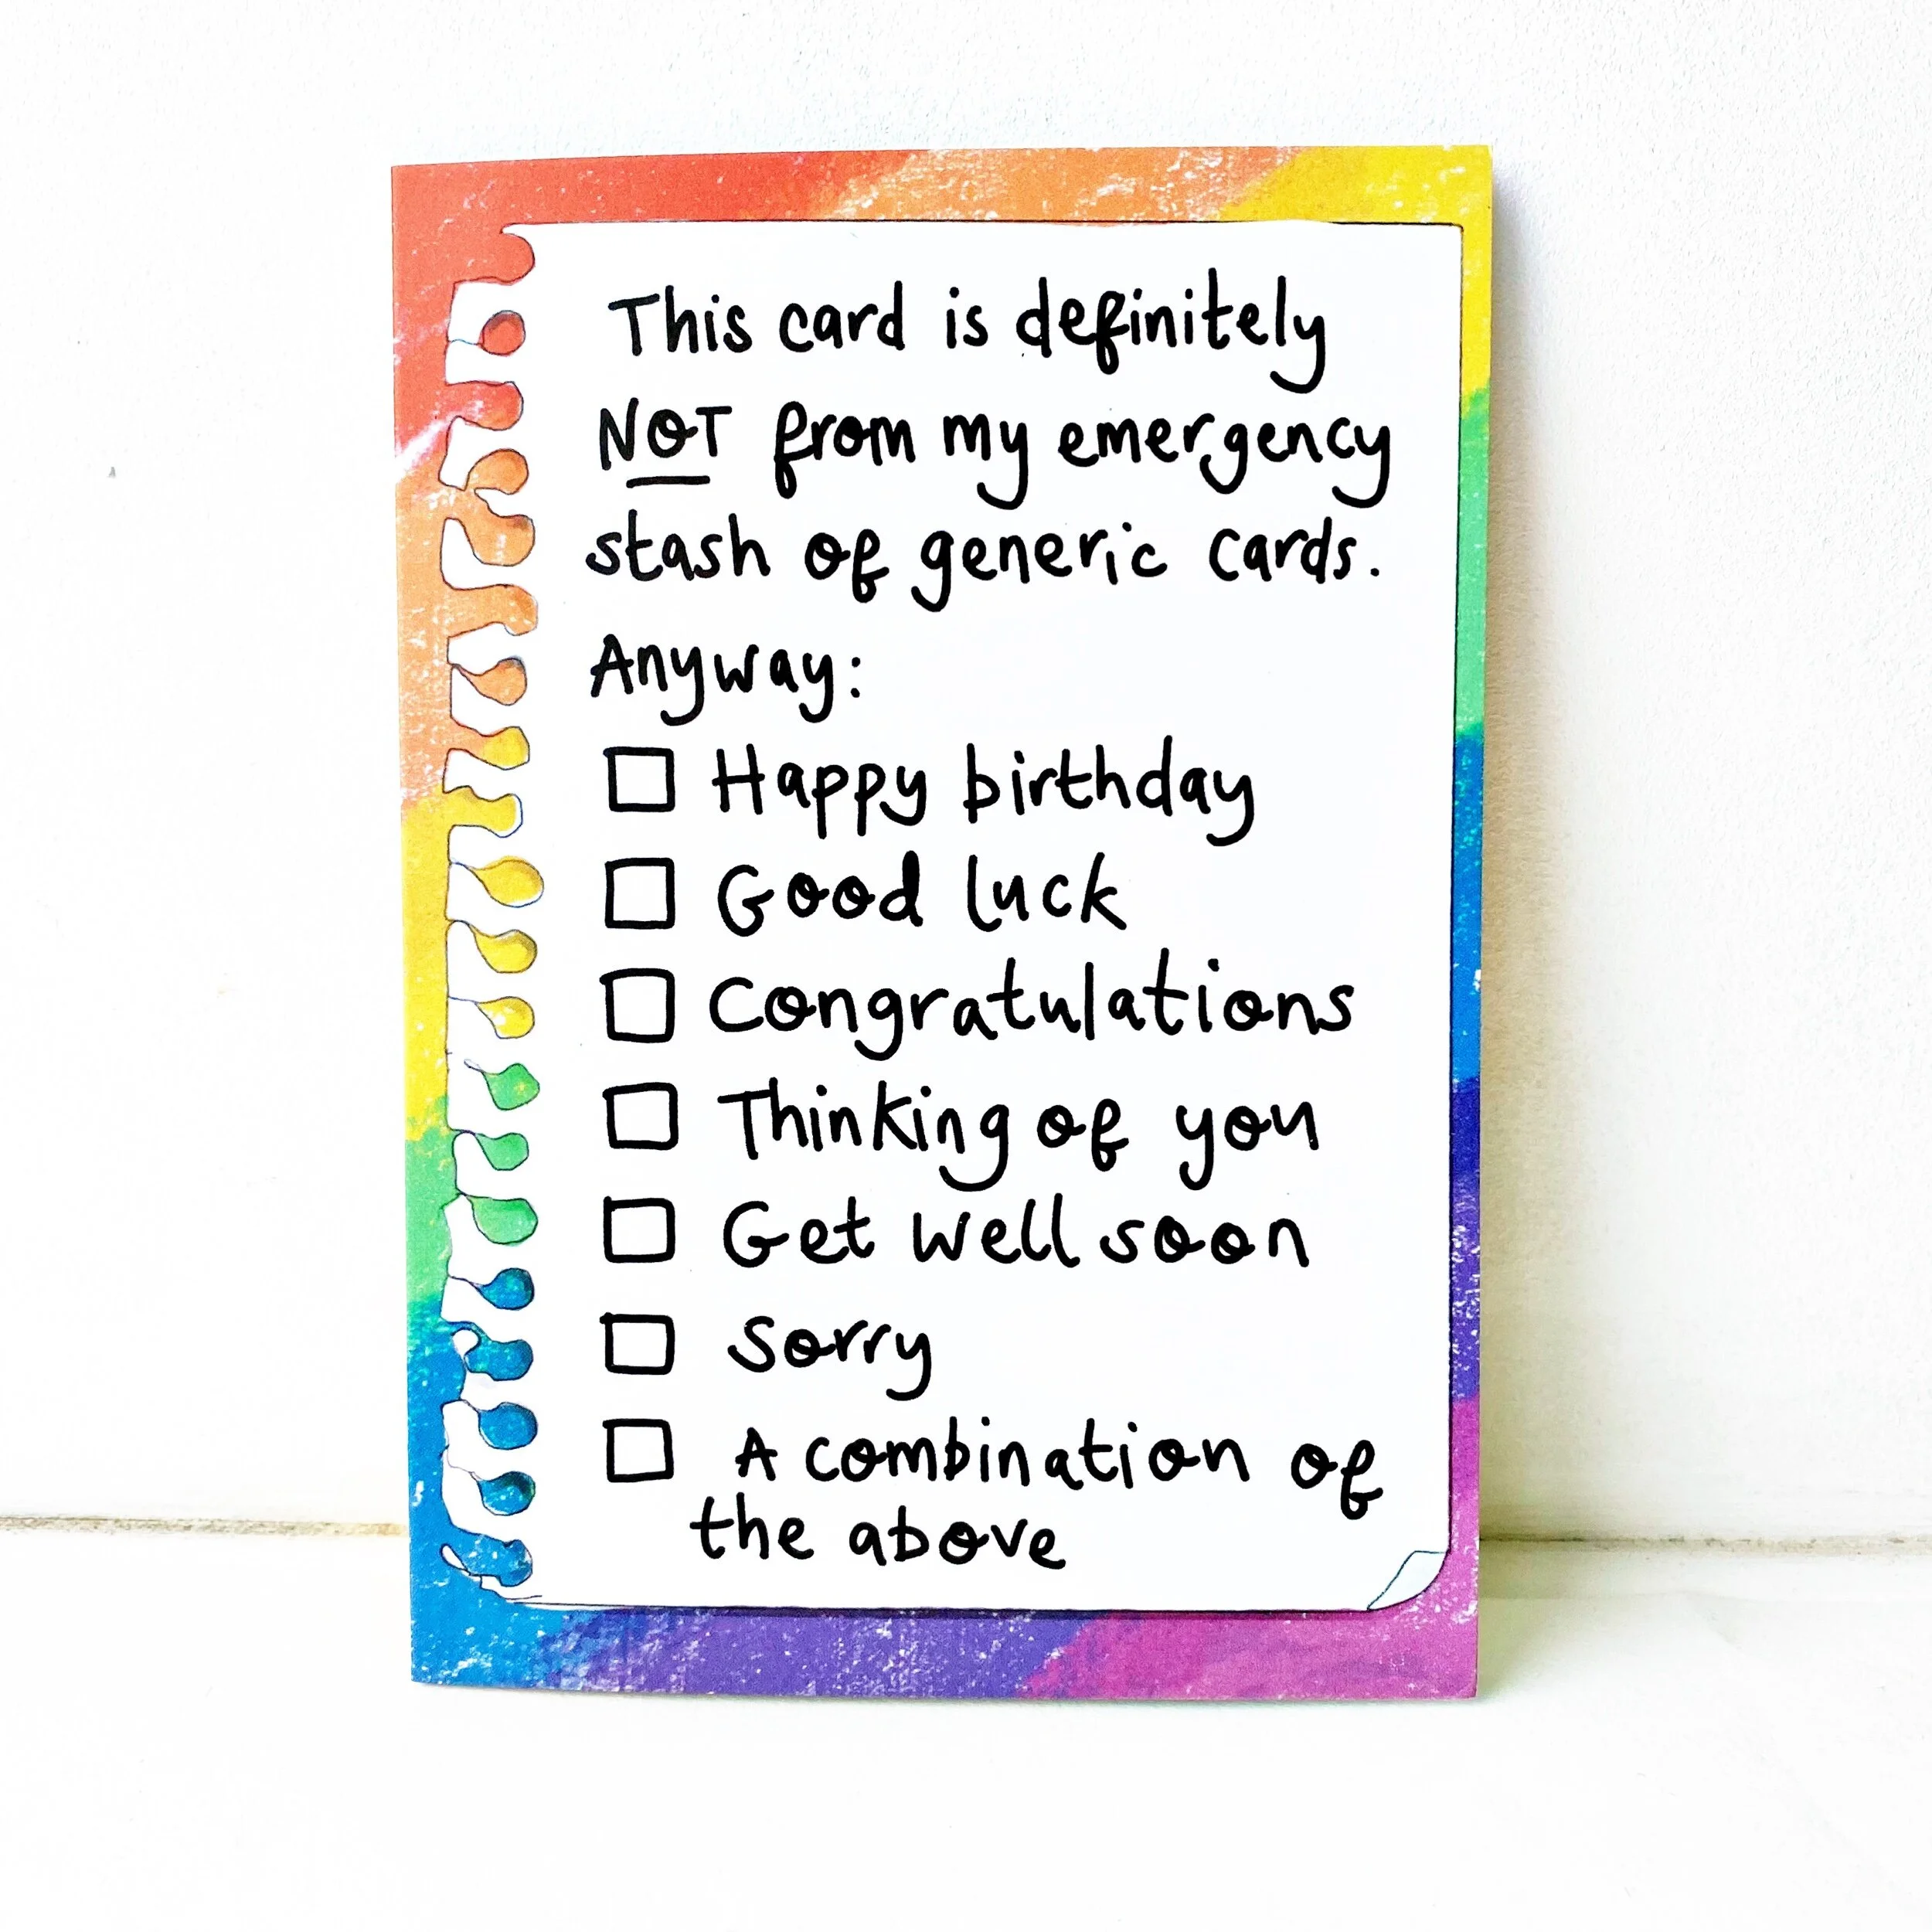 This card is definitely
NOT from my emergency
stash of generic cards.
Anyway:
☐ Happy birthday
☐ Good luck
☐ Congratulations
☐ Thinking of you
☐ Get well soon
☐ Sorry
☐ A combination of
the above